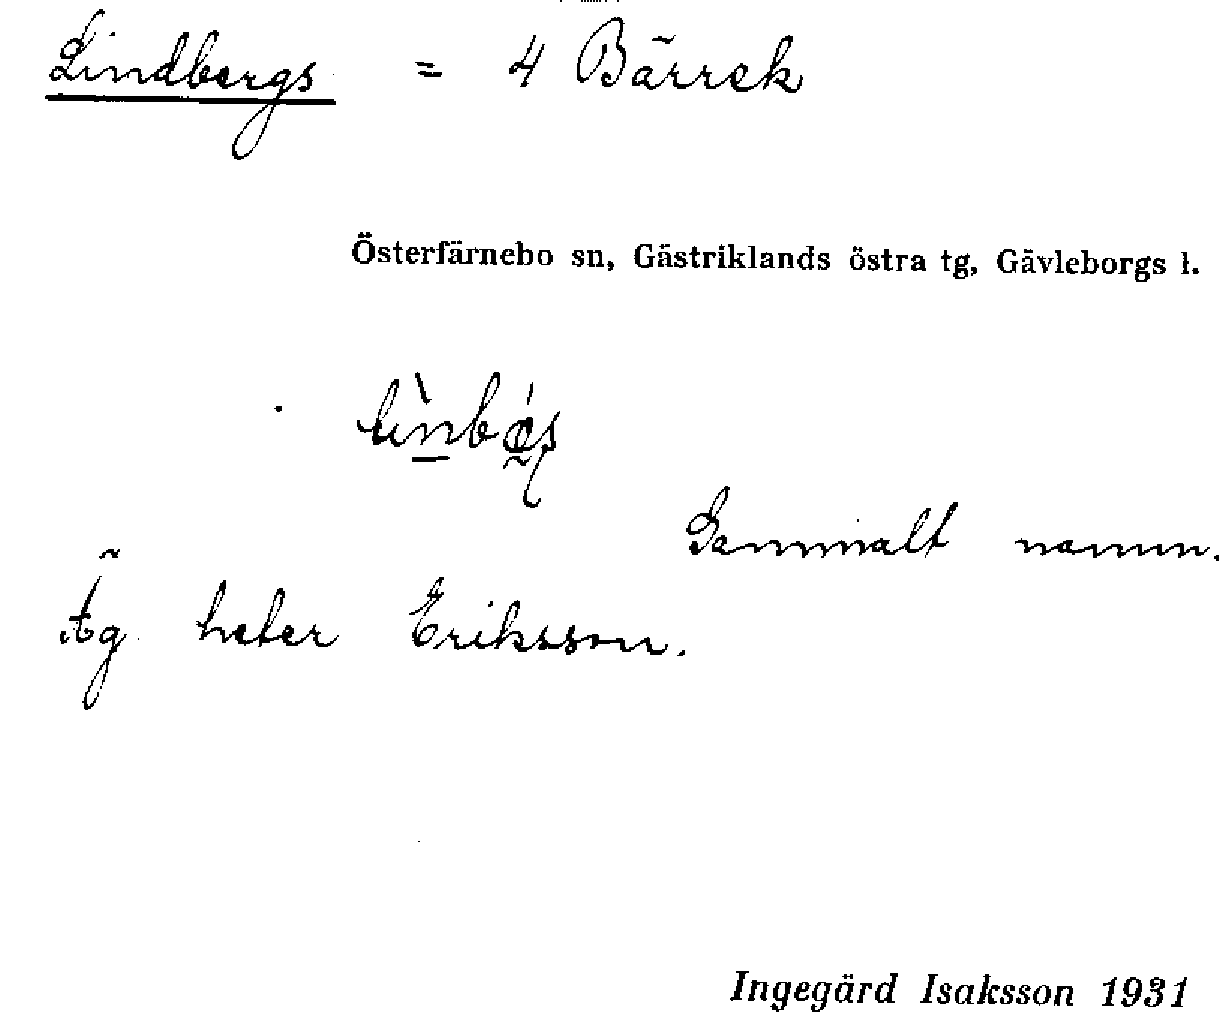 Lindbergs = 4 Bärrek
Österfärnebo sn, Gästriklands östra tg, Gävleborgs l.
Gammalt namn.
Äg heter Eriksson.
Ingegärd Isaksson 1931